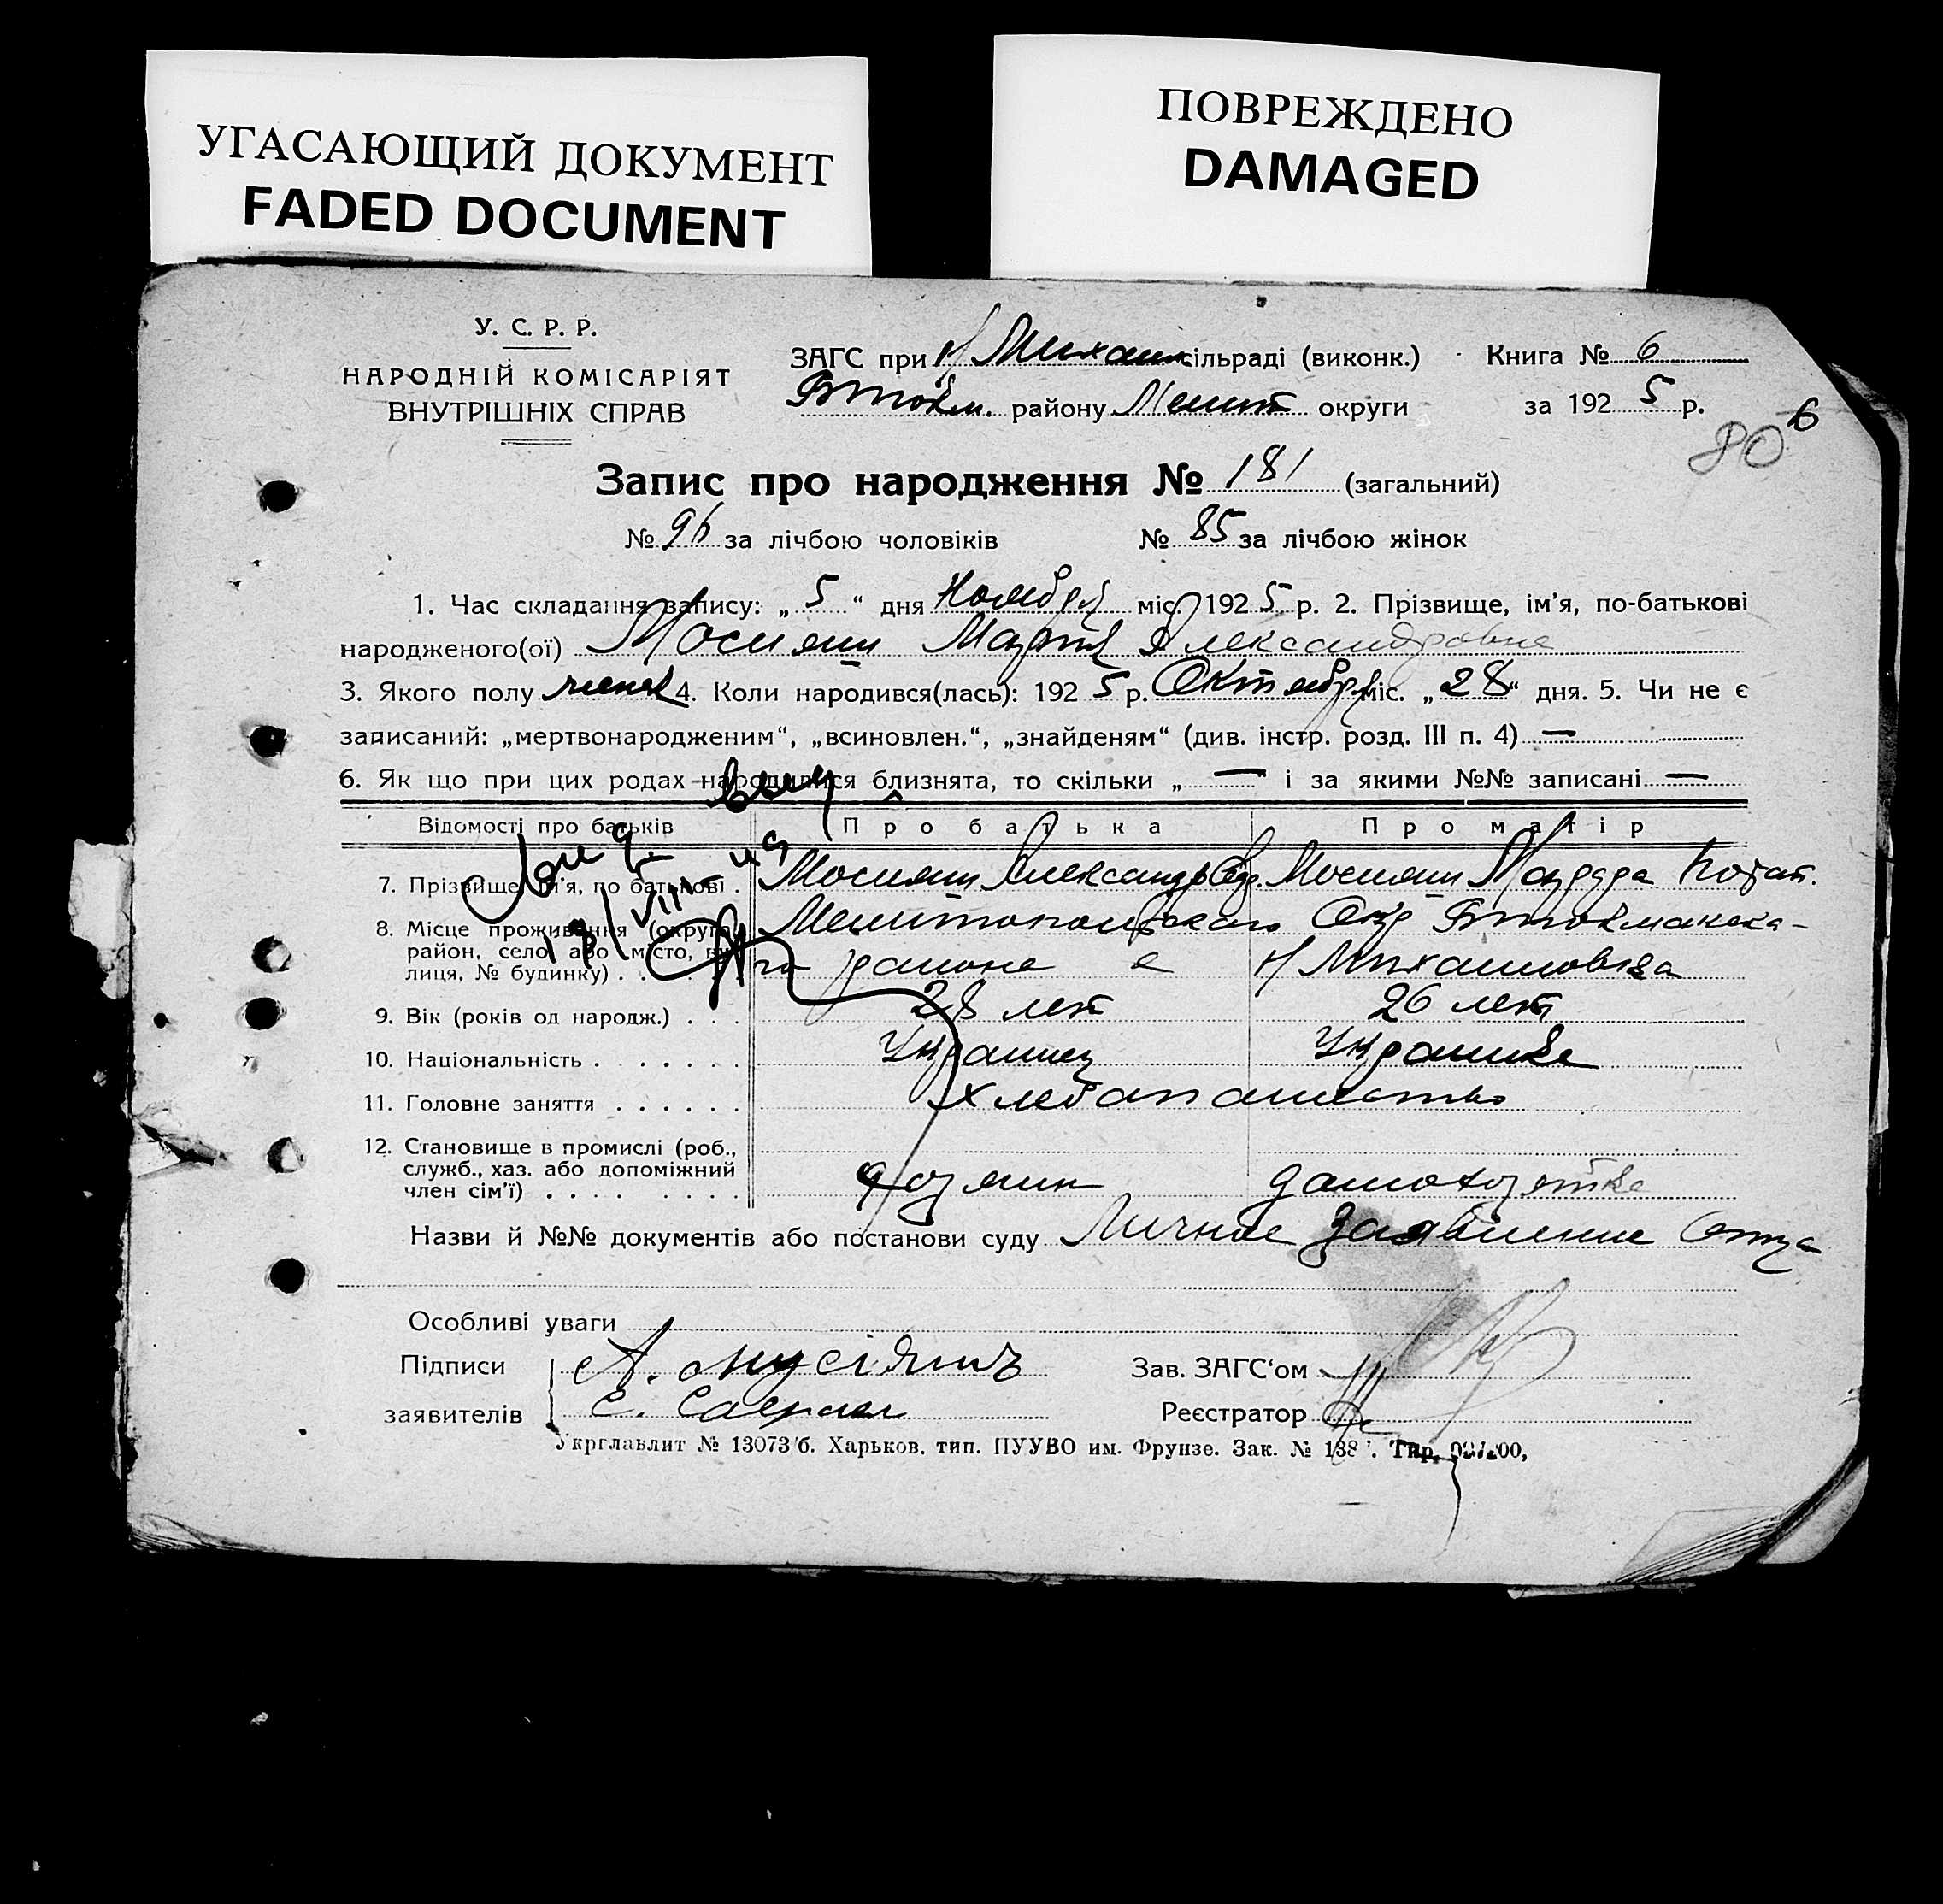 УГАСАЮЩИЙ ДОКУМЕНТ
FADED DOCUMENT
ПОВРЕЖДЕНО
DAMAGED
У. С. Р. Р.
НАРОДНІЙ КОМІСАРІЯТ
ВНУТРІШНІХ СПРАВ
ЗАГС при Н Михаил сільраді (виконк.) Книга № 6
Бтокм. району Мелит округи за 1925 р.
6
80
Запис про народження № 181 (загальний)
№ 96 за лічбою чоловіків № 85 за лічбою жінок
1. Час складання запису: „ 5 “ дня Ноября міс. 1925 р. 2. Прізвище, ім’я, по-батькові
народженого(ої) Мосияш Мария Александровна
3. Якого полу женск 4. Коли народився(лась): 1925 р. Октября міс. „ 28 “ дня. 5. Чи не є
записаний: „мертвонародженим“, „всиновлен.“, „знайденям“ (див. інстр. розд. III п. 4) —
6. Як що при цих родах народилися близнята, то скільки „ — “ і за якими №№ записані —
Відомості про батьків Про батька Про матір
7. Прізвище, ім’я, по батькові . Мосияш Александр Мосияш
8. Місце проживання (округа, Мелитопольского Окр Бтокмакска-
район, село або місто, ву-
лиця, № будинку) . . го района с Н Михайловка
9. Вік (років од народж.) . . . 28 лет 26 лет
10. Національність . . . . . . Украинец Украинка
11. Головне заняття . . . . . . Хлебопашество
12. Становище в промислі (роб.,
служб., хаз. або допоміжний
член сім’ї) . . . . . . . . хозяин домохозяйка
Назви й №№ документів або постанови суду Личное заявление Отца
Особливі уваги
Підписи А. Мусіяшъ Зав. ЗАГС‘ом
заявителів С. Реєстратор
Укрглавлит № 13073/б. Харьков. тип. ПУУВО им. Фрунзе. Зак. № Тир.